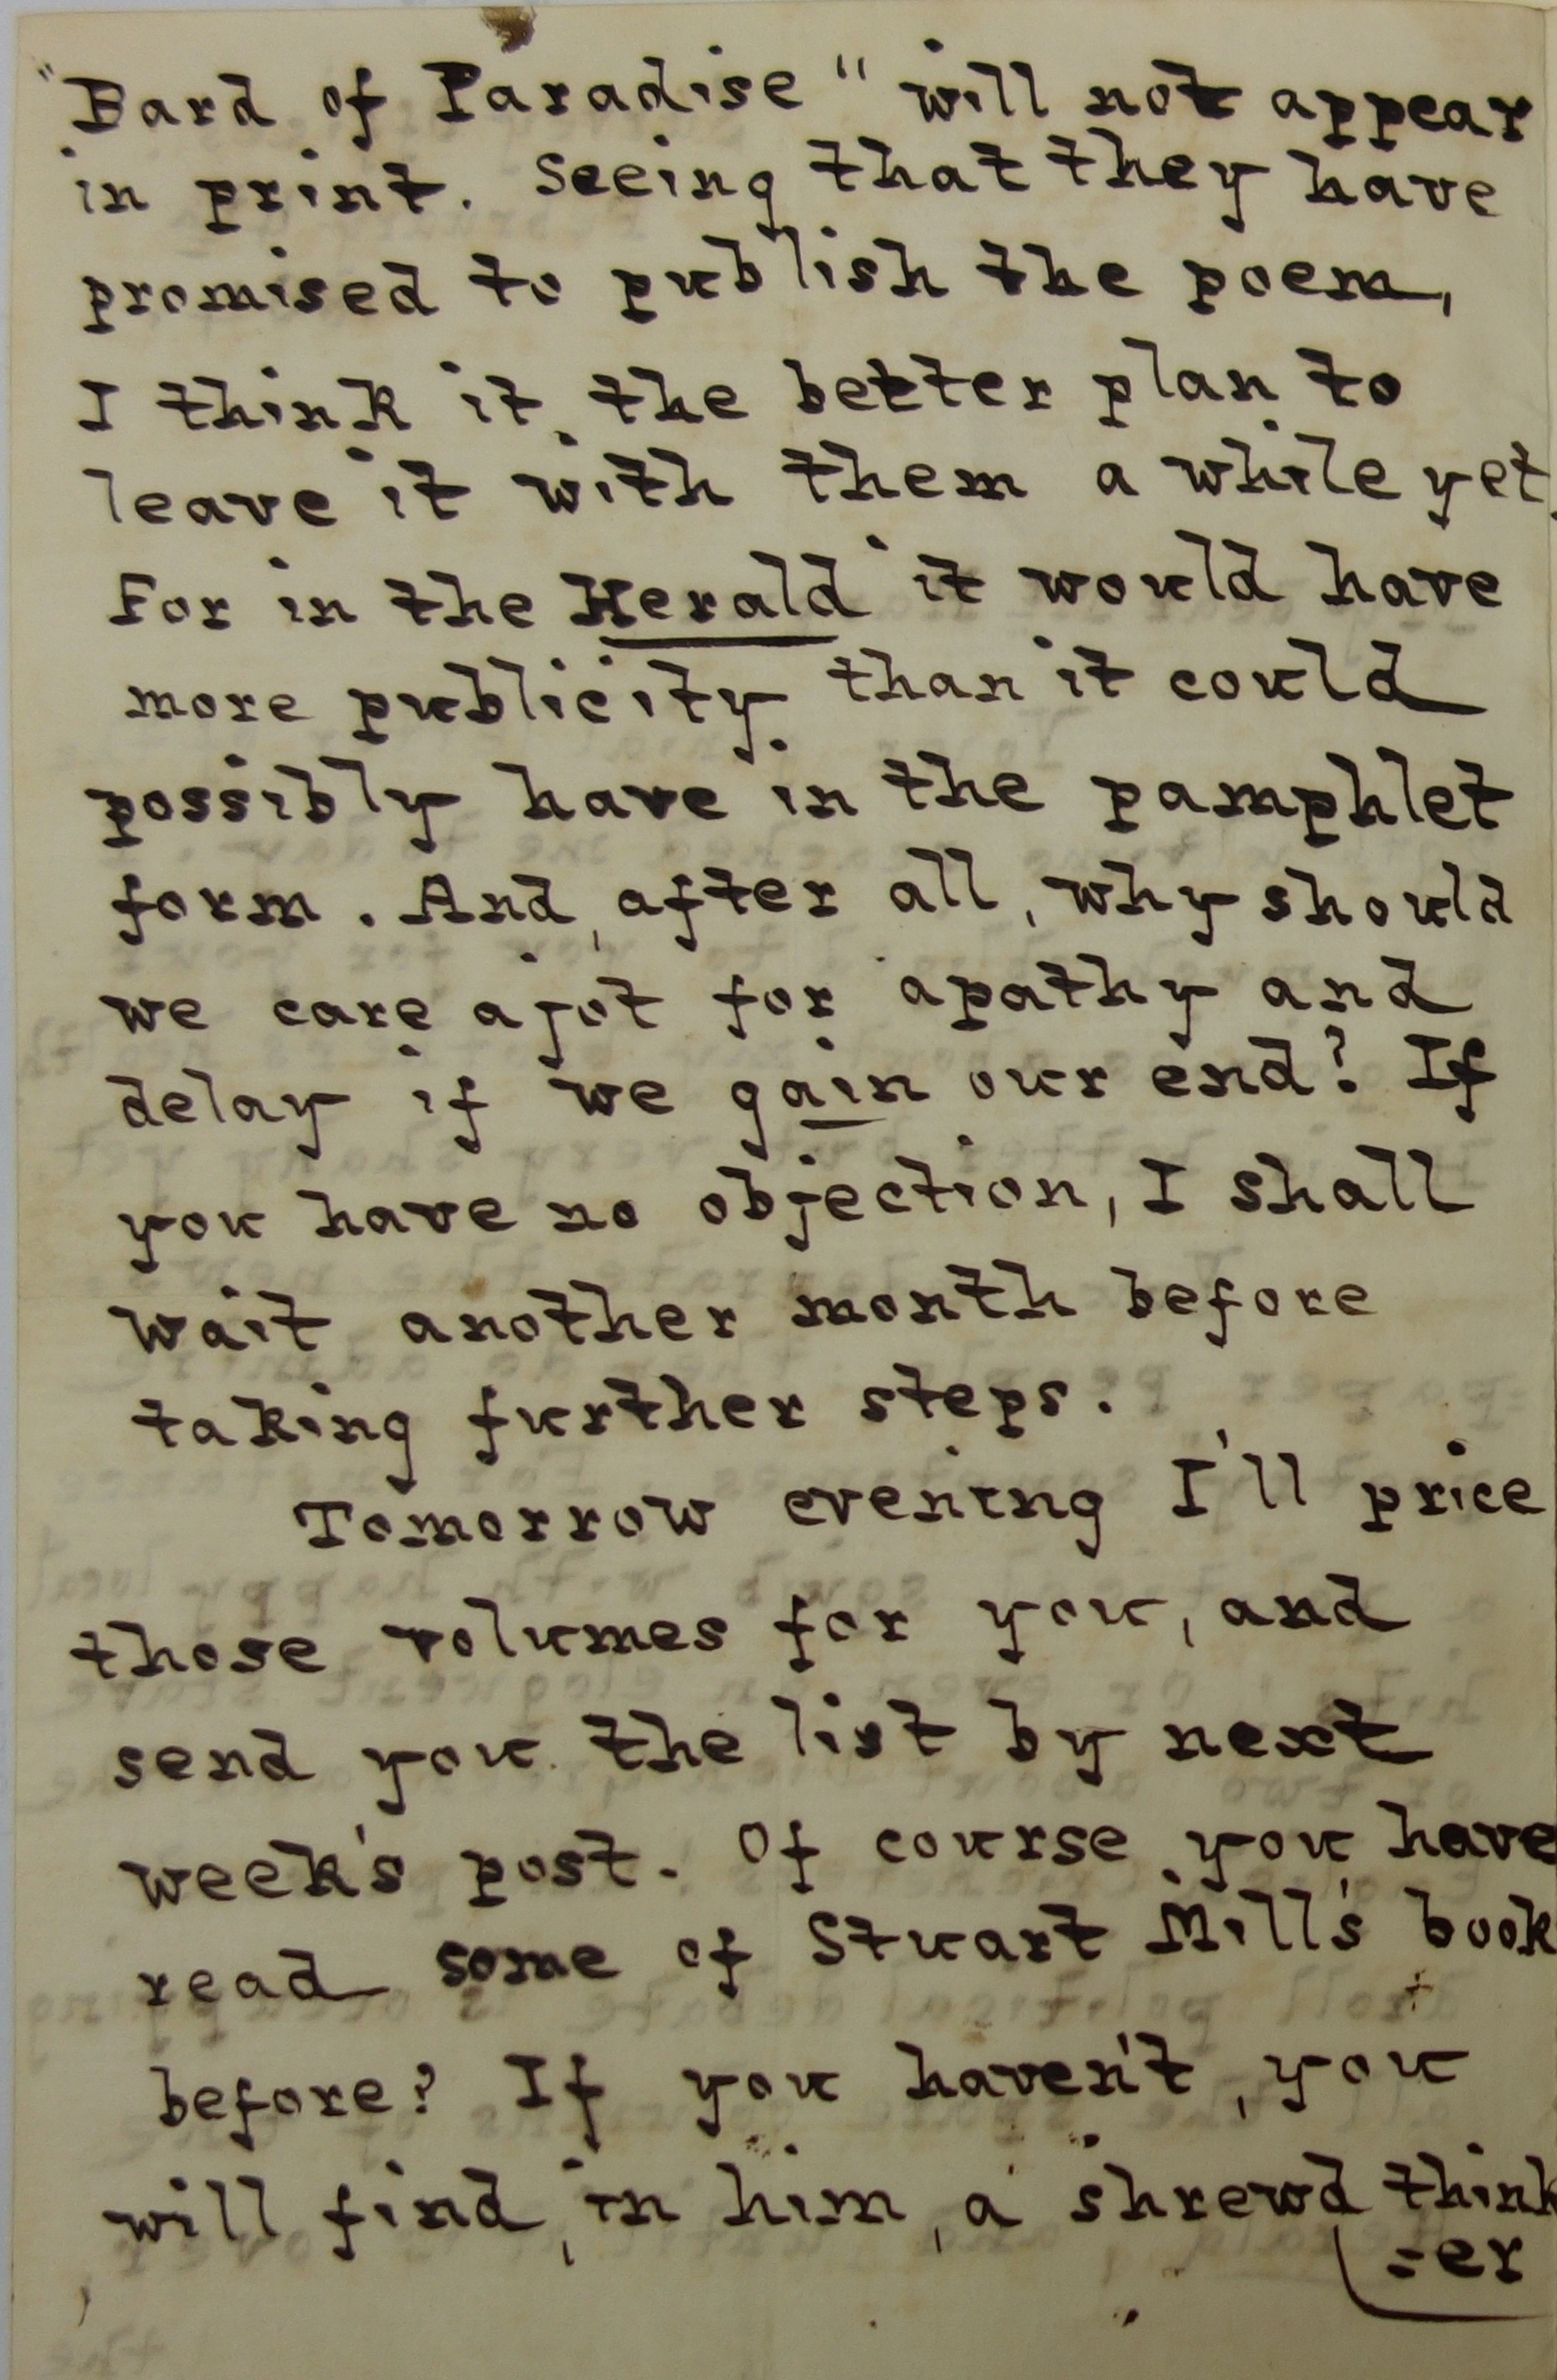 "Bard of Paradise" will not appear
in print. Seeing that they have
promised to publish the poem,
I think it the better plan to
leave it with them a while yet.
For in the Herald it would have
more publicity than it could
possibly have in the pamphlet
form. And, after all, why should
we care a jot for apathy and
delay if we gain our end? If
you have no objection, I shall
wait another month before
taking further steps.
Tomorrow evening I'll price
those volumes for you, and
send you the list by next
week's post. Of course you have
read some of Stuart Mill's book
before? If you haven't, you
will find, in him, a shrewd think
=er